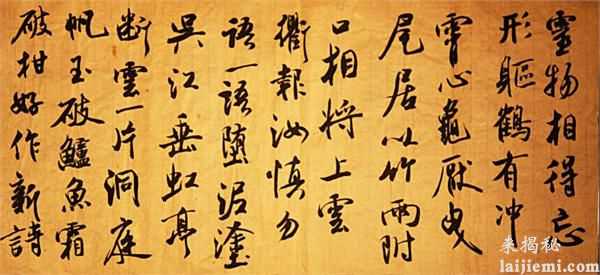 靈物相得忘
形軀鶴有冲
霄心龜厭曳
尾居以竹兩附
口相將上雲
衢報汝慎勿
語一語墮泥塗
吳江垂虹亭
斷雲一片洞庭
帆玉破鱸魚霜
破柑好作新詩
来揭秘
laijiemi.com